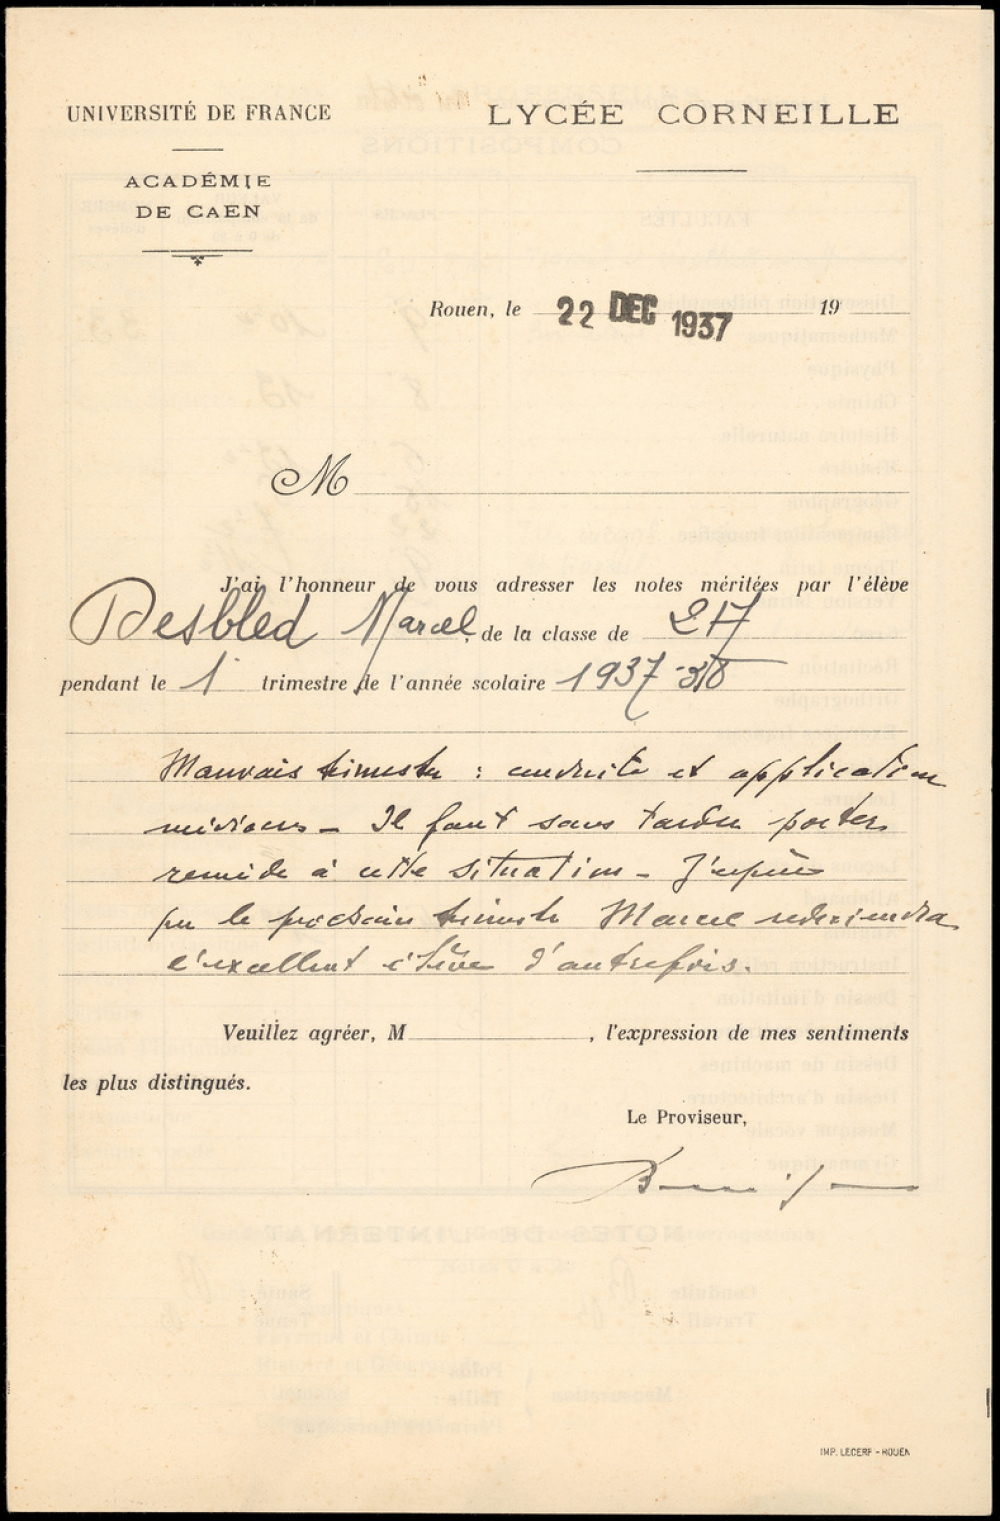 UNIVERSITÉ DE FRANCE
ACADÉMIE
DE CAEN
LYCÉE CORNEILLE
Rouen, le 22 DEC 1937 19
M
J'ai l'honneur de vous adresser les notes méritées par l'élève
Desbled Marcel, de la classe de
pendant le 1 trimestre de l'année scolaire 1937-38
Mauvais trimestre : conduite et application
médiocres - Il faut sans tarder porter
remède à cette situation - J'espère
que le prochain trimestre Marcel redeviendra
l'excellent élève d'autrefois.
Veuillez agréer, M , l'expression de mes sentiments
les plus distingués.
Le Proviseur,
IMP. LECERF - ROUEN